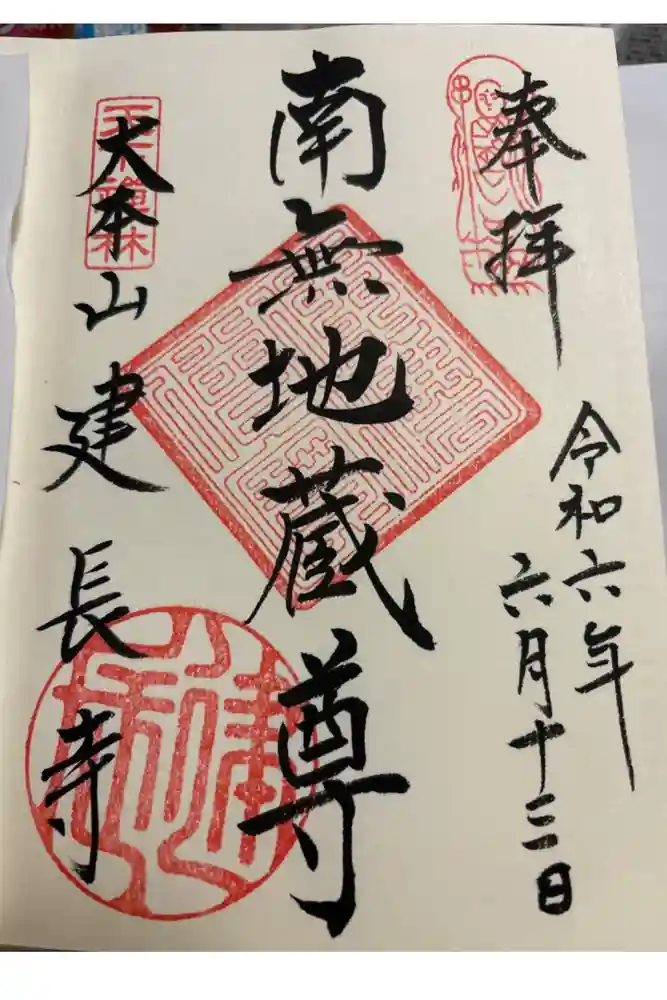 奉拝
令和六年
六月十三日
南無地蔵尊
大本山建長寺
天下禅林